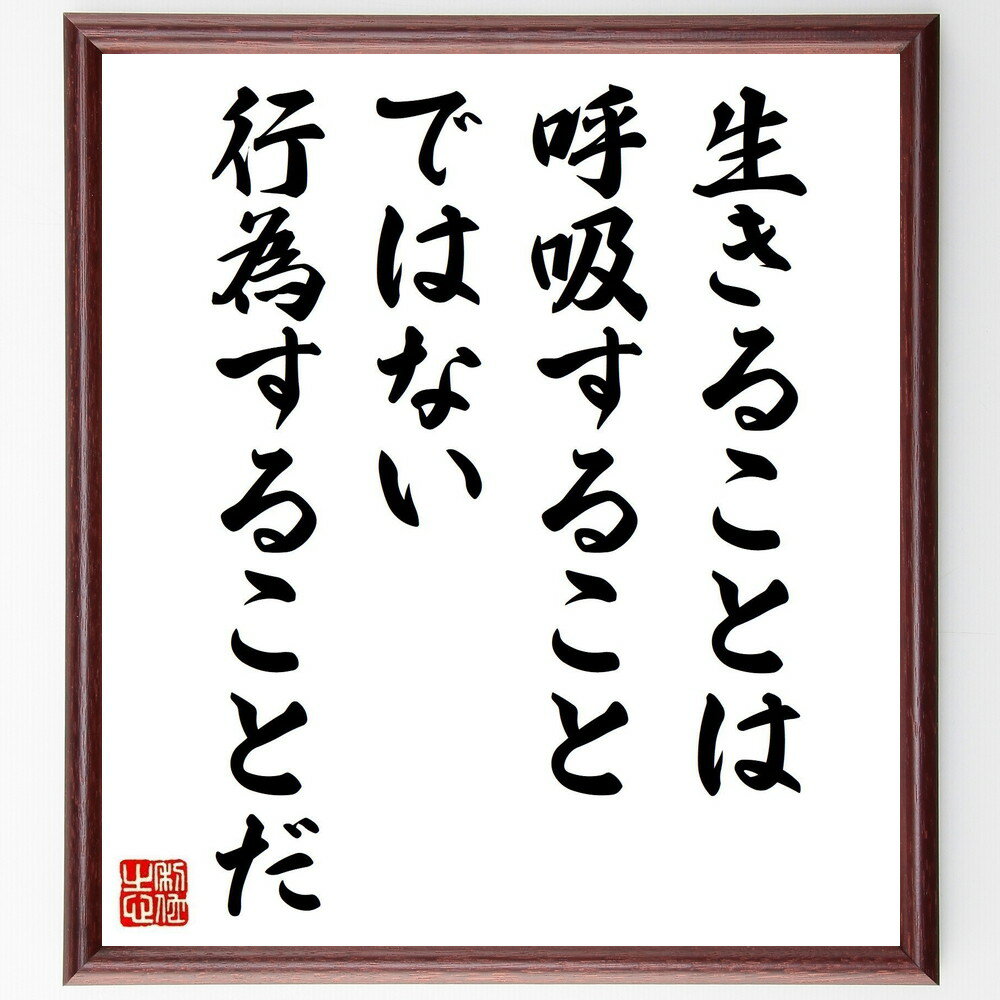 生きることは
呼吸すること
ではない
行為することだ